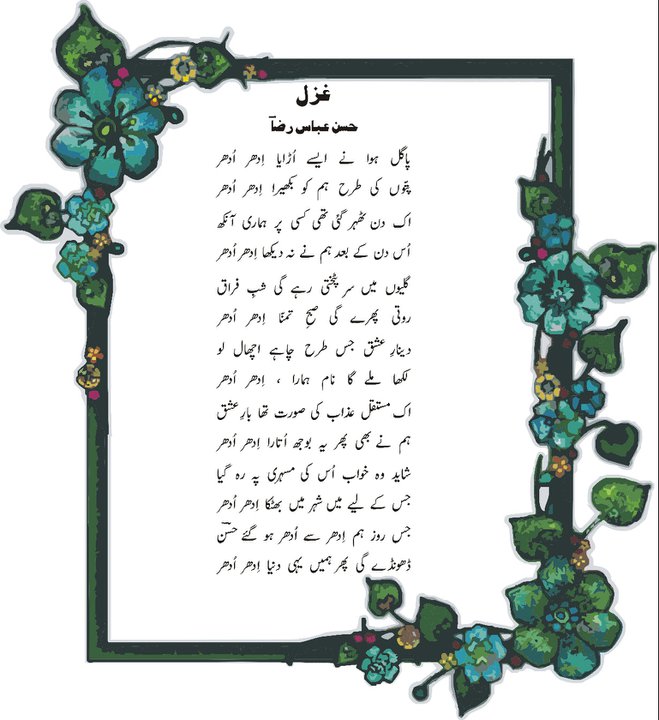 غزل
حسن عباس رضاؔ
پاگل ہوا نے ایسے اُڑایا اِدھر اُدھر
پتوں کی طرح ہم کو بکھیرا اِدھر اُدھر
اک دن ٹھہر گئی تھی کسی پر ہماری آنکھ
اُس دن کے بعد ہم نے نہ دیکھا اِدھر اُدھر
گلیوں میں سر پٹختی رہے گی شبِ فراق
روتی پھرے گی صبحِ تمنّا اِدھر اُدھر
دینارِ عشق جس طرح چاہے اچھال لو
لکھا ملے گا نام ہمارا ، اِدھر اُدھر
اک مستقل عذاب کی صورت تھا بارِ عشق
ہم نے بھی پھر یہ بوجھ اُتارا اِدھر اُدھر
شاید وہ خواب اُس کی مسہری پہ رہ گیا
جس کے لیے میں شہر میں بھٹکا اِدھر اُدھر
جس روز ہم اِدھر سے اُدھر ہو گئے حسنؔ
ڈھونڈے گی پھر ہمیں یہی دنیا اِدھر اُدھر